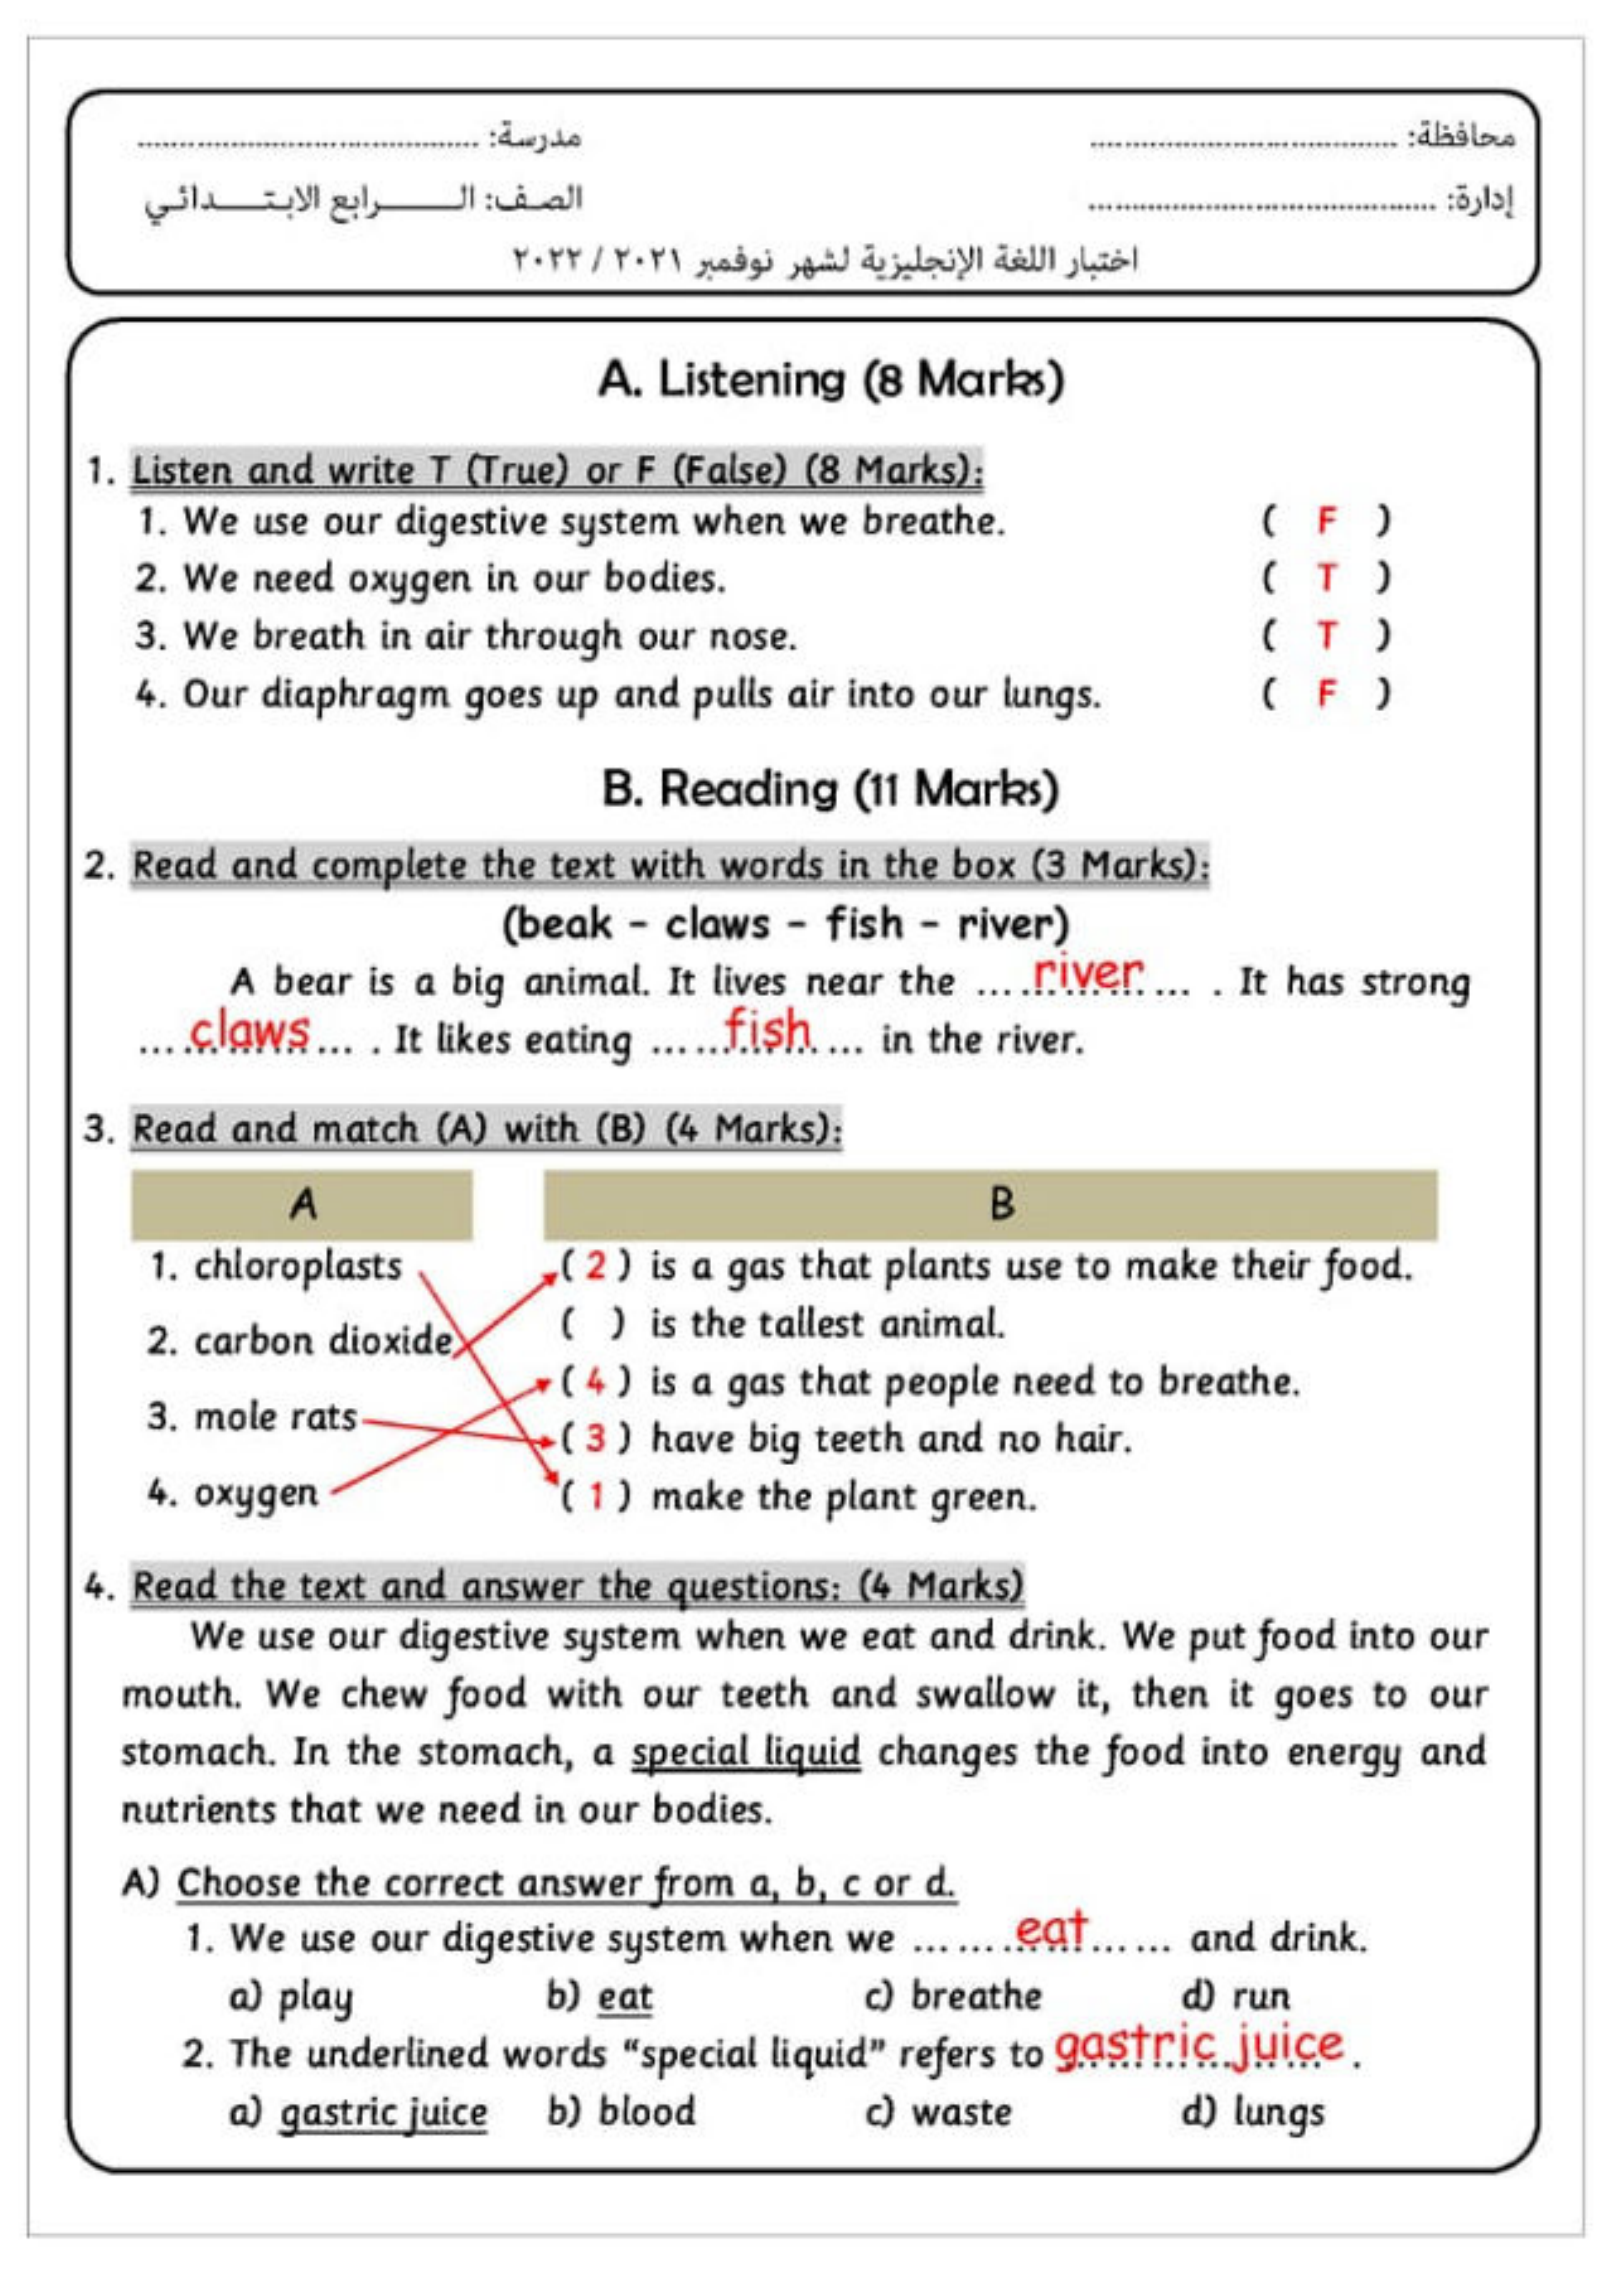 محافظة: ........................................ مدرسة: ........................................
إدارة: ........................................ الصف: الـــــرابع الابـتـــــدائـي
اختبار اللغة الإنجليزية لشهر نوفمبر ٢٠٢١ / ٢٠٢٢
A. Listening (8 Marks)
1. Listen and write T (True) or F (False) (8 Marks):
1. We use our digestive system when we breathe. ( F )
2. We need oxygen in our bodies. ( T )
3. We breath in air through our nose. ( T )
4. Our diaphragm goes up and pulls air into our lungs. ( F )
B. Reading (11 Marks)
2. Read and complete the text with words in the box (3 Marks):
(beak - claws - fish - river)
A bear is a big animal. It lives near the ... river ... . It has strong
... claws ... . It likes eating ... fish ... in the river.
3. Read and match (A) with (B) (4 Marks):
A B
1. chloroplasts ( 2 ) is a gas that plants use to make their food.
2. carbon dioxide ( ) is the tallest animal.
( 4 ) is a gas that people need to breathe.
3. mole rats ( 3 ) have big teeth and no hair.
4. oxygen ( 1 ) make the plant green.
4. Read the text and answer the questions: (4 Marks)
We use our digestive system when we eat and drink. We put food into our
mouth. We chew food with our teeth and swallow it, then it goes to our
stomach. In the stomach, a special liquid changes the food into energy and
nutrients that we need in our bodies.
A) Choose the correct answer from a, b, c or d.
1. We use our digestive system when we ... eat ... and drink.
a) play b) eat c) breathe d) run
2. The underlined words “special liquid” refers to gastric juice .
a) gastric juice b) blood c) waste d) lungs